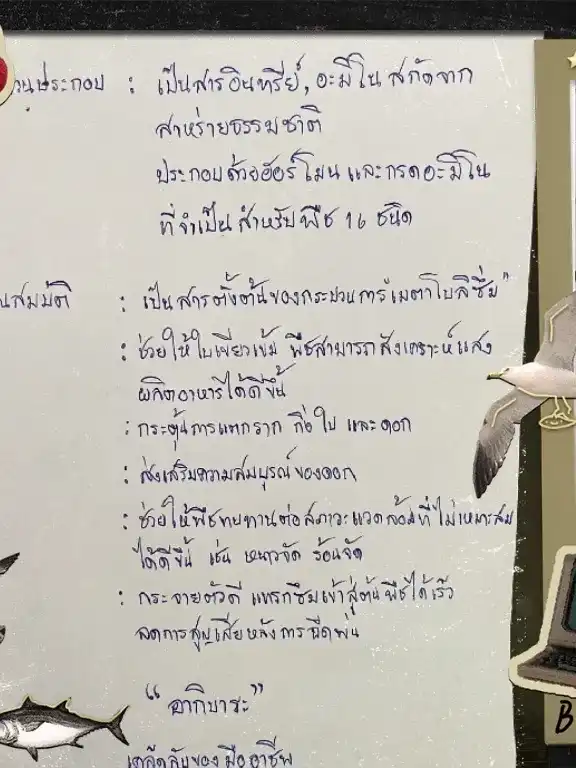 วนประกอบ : เป็นสารอินทรีย์, อะมิโน สกัดจาก
สาหร่ายธรรมชาติ
ประกอบด้วยฮอร์โมน และกรดอะมิโน
ที่จำเป็น สำหรับพืช 16 ชนิด
ณสมบัติ : เป็นสารตั้งต้นของกระบวนการเมตาโบลิซึ่ม"
: ช่วยให้ใบเขียวเข้ม พืชสามารถสังเคราะห์แสง
ผลิตอาหารได้ดีขึ้น
: กระตุ้นการแตกราก กิ่ง ใบ และดอก
: ส่งเสริมความสมบูรณ์ของดอก
: ช่วยให้พืชทนทานต่อสภาวะแวดล้อมที่ไม่เหมาะสม
ได้ดีขึ้น เช่น หนาวจัด ร้อนจัด
: กระจายตัวดี แทรกซึมเข้าสู่ต้นพืชได้เร็ว
ลดการสูญเสียหลังการฉีดพ่น
"อากิบาระ"
เคล็ดลับของมืออาชีพ
B